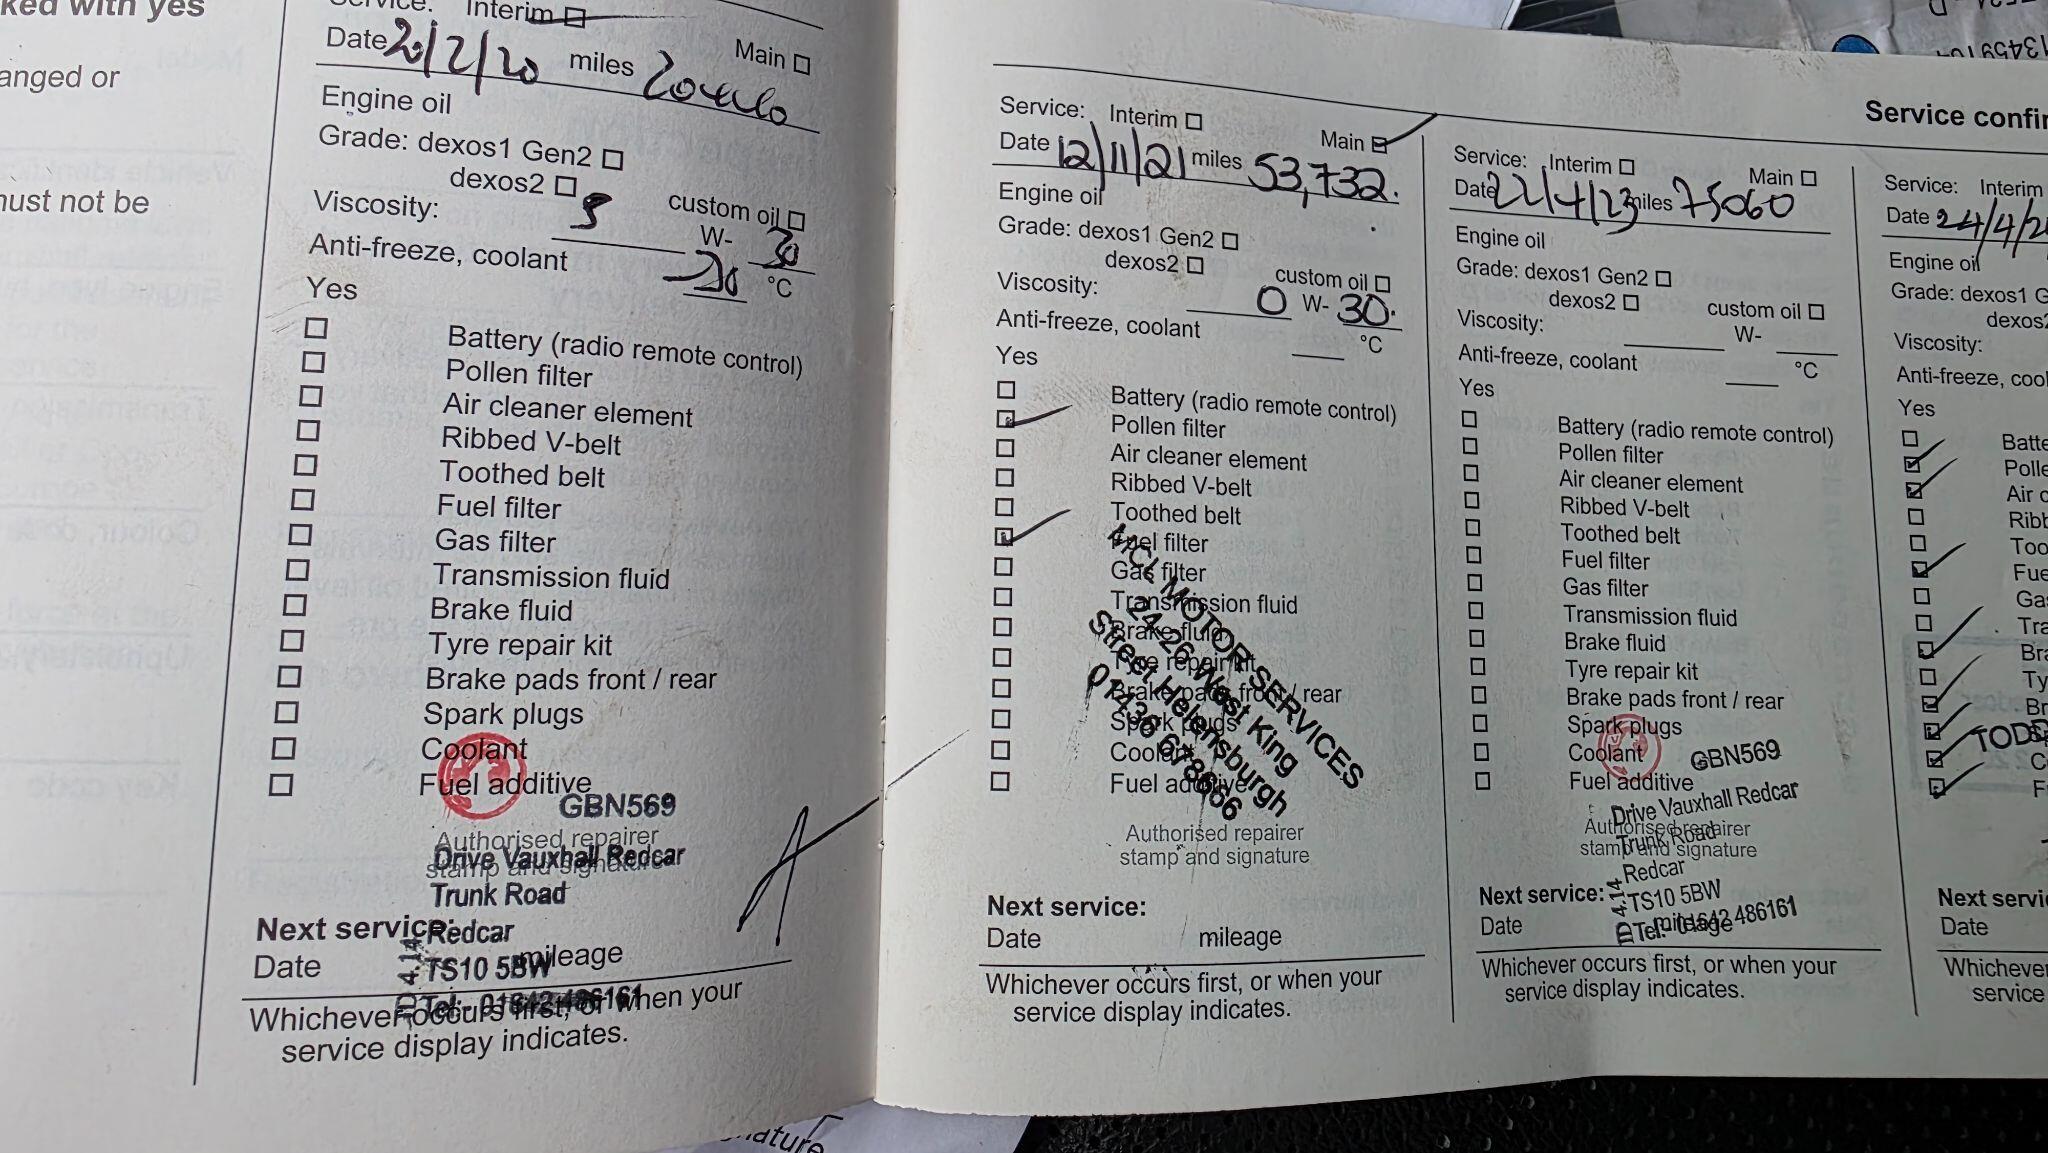 ked with yes
anged or
must not be
Service: Interim
Main
Date 20/2/20 miles
Engine oil
Grade: dexos1 Gen2
dexos2
custom oil
Viscosity: 5 W- 30
Anti-freeze, coolant °C
Yes
Battery (radio remote control)
Pollen filter
Air cleaner element
Ribbed V-belt
Toothed belt
Fuel filter
Gas filter
Transmission fluid
Brake fluid
Tyre repair kit
Brake pads front / rear
Spark plugs
Coolant
Fuel additive
GBN569
Authorised repairer
stamp and signature
Drive Vauxhall Redcar
Trunk Road
Redcar
TS10 5BW
Tel:- 01642 486161
Next service:
Date mileage
Whichever occurs first, or when your
service display indicates.
Service: Interim
Main
Date 12/11/21 miles 53,732.
Engine oil
Grade: dexos1 Gen2
dexos2
custom oil
Viscosity: 0 W- 30.
Anti-freeze, coolant °C
Yes
Battery (radio remote control)
Pollen filter
Air cleaner element
Ribbed V-belt
Toothed belt
Fuel filter
Gas filter
Transmission fluid
Brake fluid
Tyre repair kit
Brake pads front / rear
Spark plugs
Coolant
Fuel additive
MOTOR SERVICES
24-26 West King
Street Helensburgh
01436 678666
Authorised repairer
stamp and signature
Next service:
Date mileage
Whichever occurs first, or when your
service display indicates.
Service confir
Service: Interim
Main
Date 22/4/23 miles 75060
Engine oil
Grade: dexos1 Gen2
dexos2
custom oil
Viscosity: W-
Anti-freeze, coolant °C
Yes
Battery (radio remote control)
Pollen filter
Air cleaner element
Ribbed V-belt
Toothed belt
Fuel filter
Gas filter
Transmission fluid
Brake fluid
Tyre repair kit
Brake pads front / rear
Spark plugs
Coolant
Fuel additive
GBN569
Drive Vauxhall Redcar
Trunk Road
Redcar
TS10 5BW
Tel:- 01642 486161
Authorised repairer
stamp and signature
Next service:
Date mileage
Whichever occurs first, or when your
service display indicates.
Service: Interim
Date 24/4/2
Engine oil
Grade: dexos1 G
dexos2
Viscosity:
Anti-freeze, cool
Yes
Batte
Polle
Air c
Ribb
Too
Fue
Gas
Tra
Bra
Ty
Br
TODD
C
F
Next servi
Date
Whichever
service